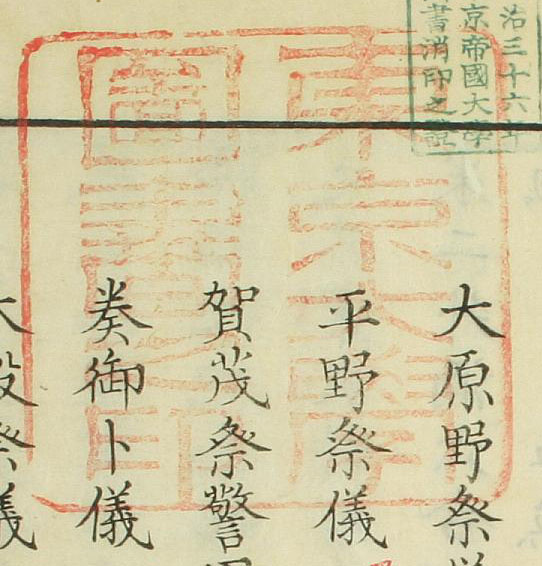 治三十六年
京帝國大學
書消印之證
東京大學
圖書之印
大原野祭
平野祭儀
賀茂祭警
奏御卜儀
大殿祭儀